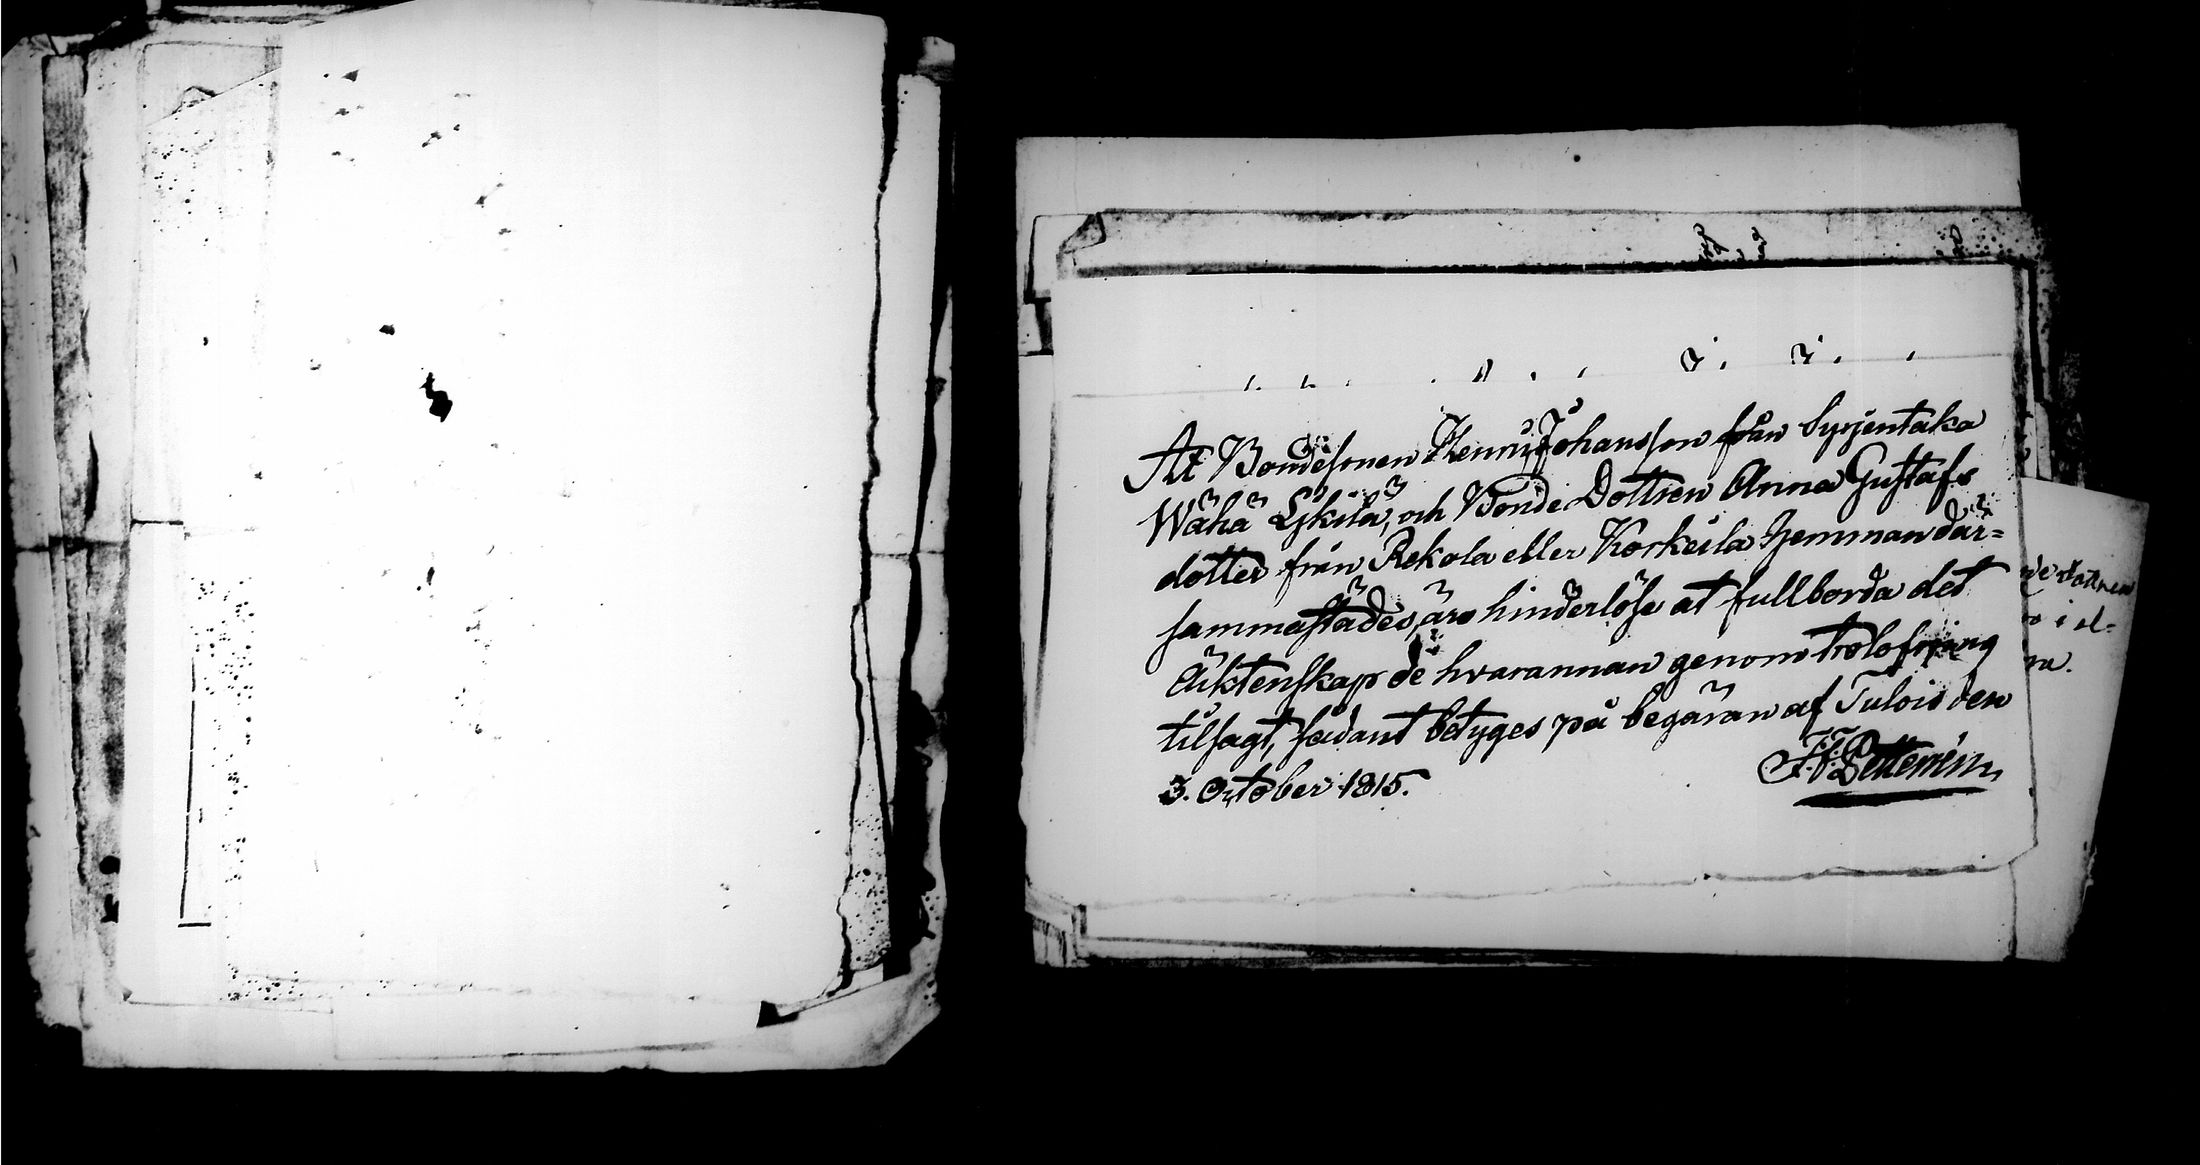 At Bondesonen Henric Johansson från Syrjentaka
Wähä Eskilä, och Bonde Dottren Anna Gustafs
dotter från Rekola eller Korkeila Hemman där=
sammastädes, äro hinderlöse at fullborda det
Äktenskap de hvarannan genom trolofning
tilsagt, sådant betyges på begäran af Tulois den
3. October 1815.
de dottren
i el=